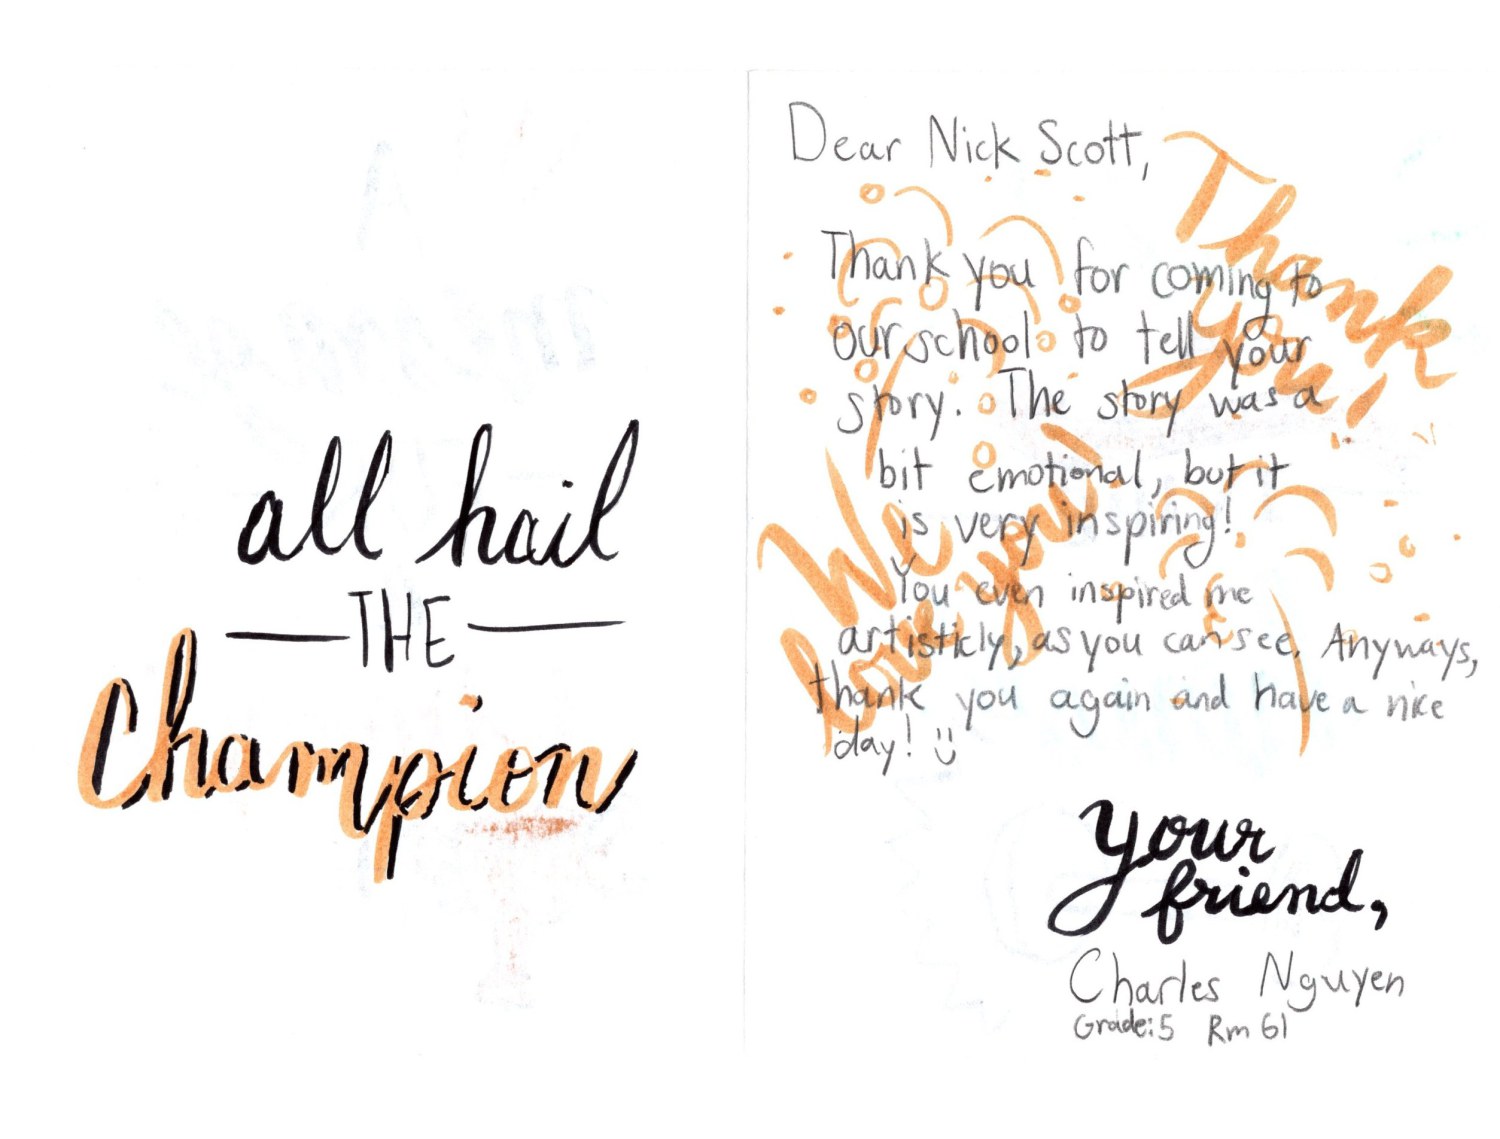 all hail
THE
Champion
Dear Nick Scott,
Thank you for coming to
our school to tell your
story. The story was a
bit emotional, but it
is very inspiring!
You even inspired me
artisticly, as you can see. Anyways,
thank you again and have a nice
day! :)
Thank
you!
We
love you!
your
friend,
Charles Nguyen
Grade:5 Rm 61